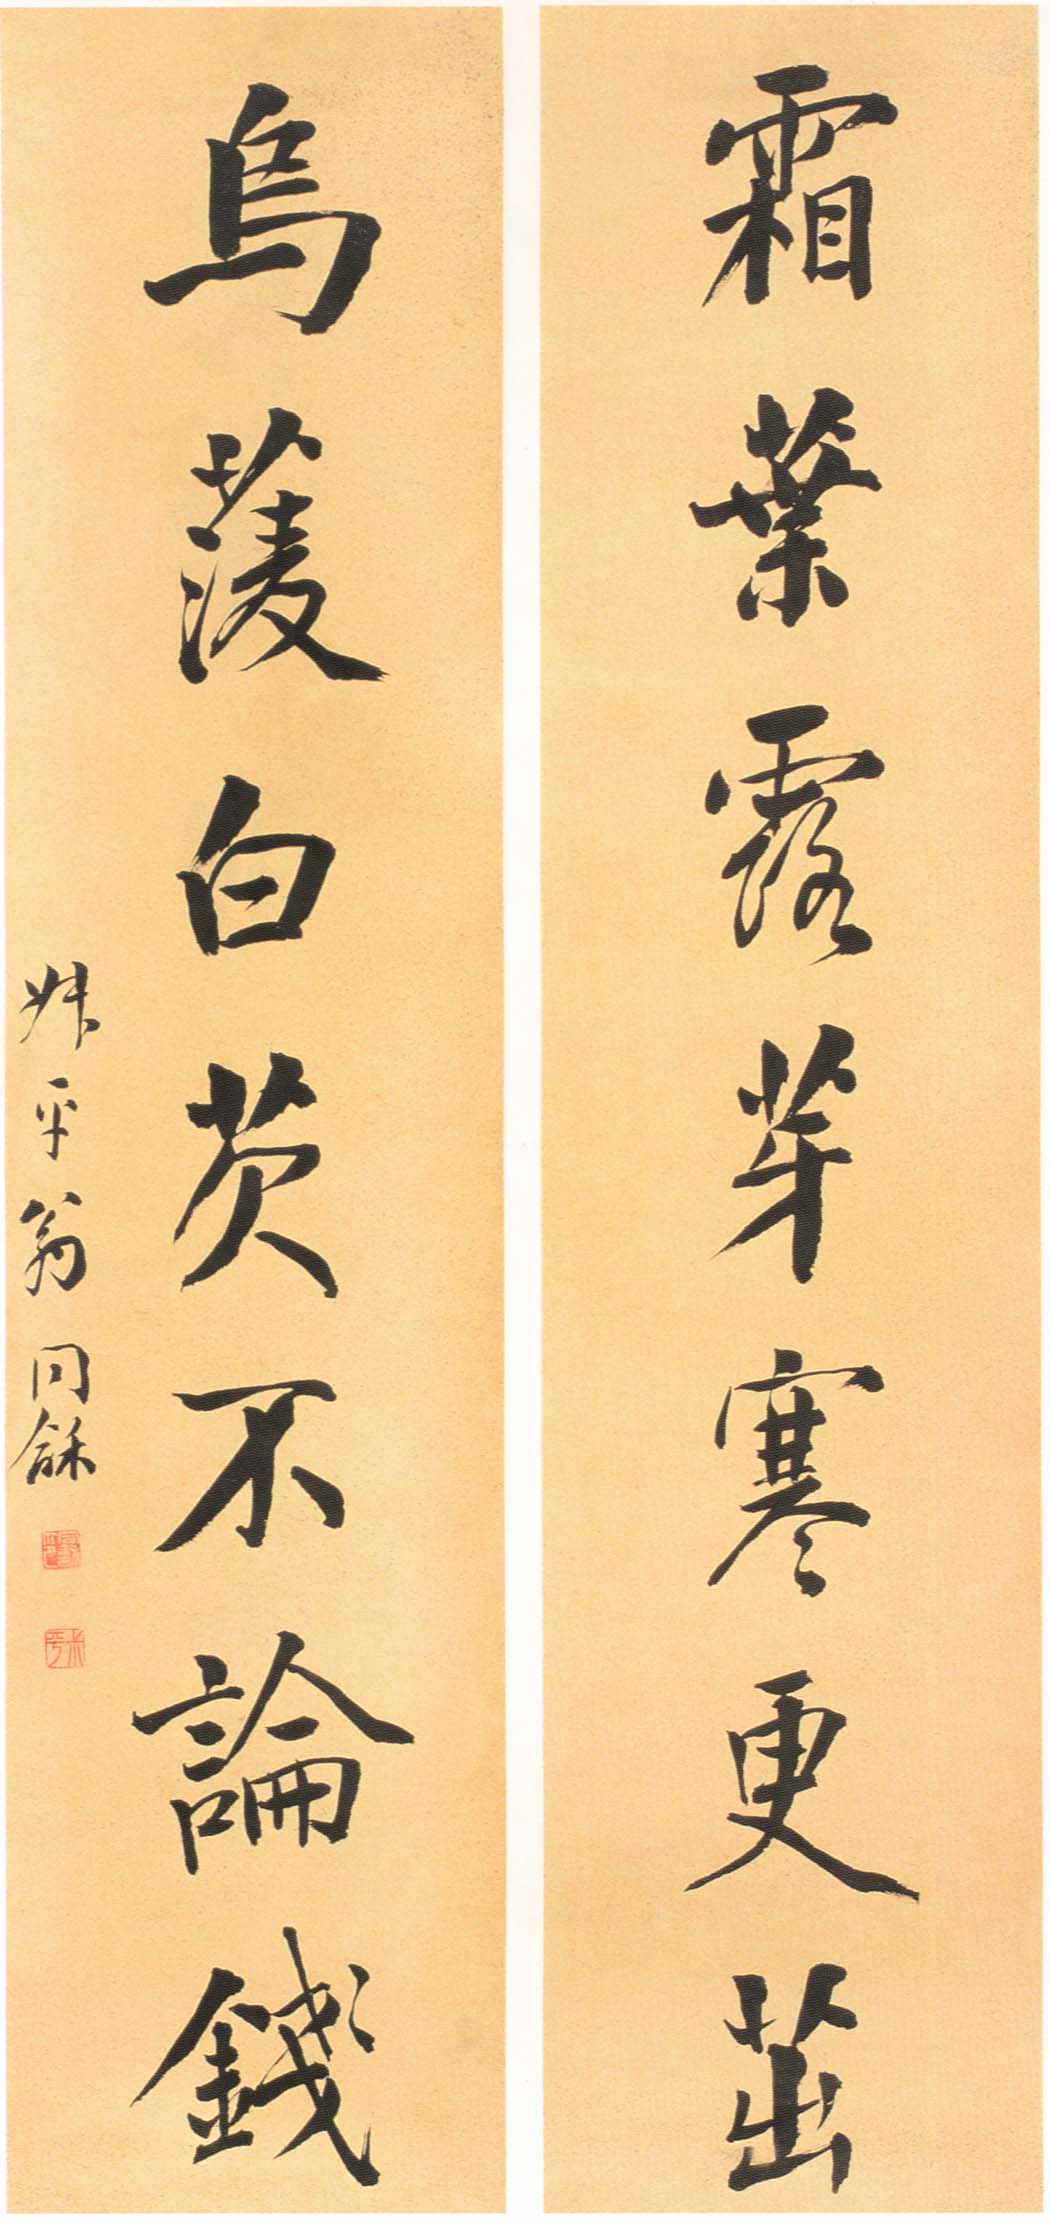 霜葉露芽寒更茁
烏菱白芡不論錢
尗平翁同龢